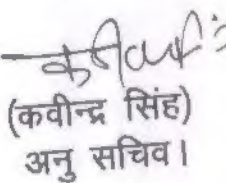 (कवीन्द्र सिंह)
अनु सचिव।